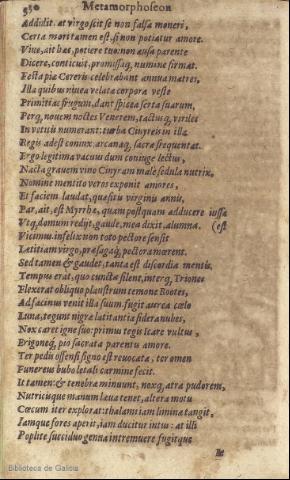 530 Metamorphoseon
Addidit. at virgo scit se non falsa moneri,
Certa mori tamen est, si non potiatur amore.
Viue, ait hæc, potiere tuo: non ausa parente
Dicere, conticuit, promissaq, numine firmat.
Festa piæ Cereris celebrabant annua matres,
Illa quibus niuea velatæ corpora veste
Primitias frugum, dant spicea serta suarum,
Perq, nouem noctes Venerem, tactusq, viriles
In vetitis numerant: turba Cinyreis in illa
Regis adest coniux: arcanaq, sacra frequentat.
Ergo legitima vacuus dum coniuge lectus,
Nacta grauem vino Cinyram male sedula nutrix,
Nomine mentito veros exponit amores,
Et faciem laudat, quæsitis virginis annis,
Par, ait, est Myrrhæ, quam postquam adducere iussa
Vtq, domum redijt, gaude, mea dixit, alumna. (est
Vicimus. infelix non toto pectore sensit
Lætitiam virgo, præsagaq, pectora mœrent.
Sed tamen & gaudet, tanta est discordia mentis,
Tempus erat, quo cuncta silent, interq, Triones
Flexerat obliquo plaustrum temone Bootes,
Ad facinus venit illa suum. fugit aurea cœlo
Luna, tegunt nigræ latitantia sidera nubes,
Nox caret igne suo: primus tegis Icare vultus,
Erigoneq, pio sacrata parentis amore.
Ter pedis offensi signo est reuocata, ter omen
Funereus bubo letali carmine fecit.
It tamen: & tenebræ minuunt, noxq, atra pudorem,
Nutricisque manum læua tenet, altera motu
Cæcum iter explorat: thalami iam limina tangit,
Iamque fores aperit, iam ducitur intus: at illi
Poplite succiduo genua intremuere fugitque
Biblioteca de Galicia